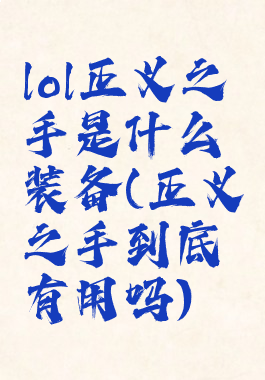 lol正义之
手是什么
装备(正义
之手到底
有用吗)